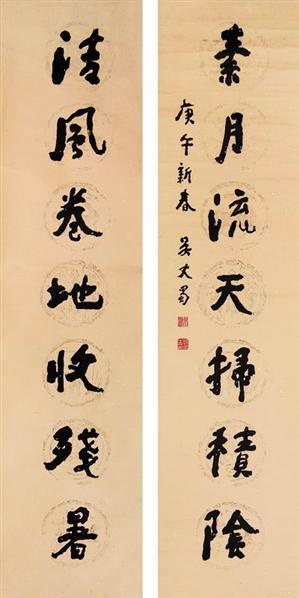 素月流天掃積陰
庚午新春 吴丈蜀
清風卷地收殘暑